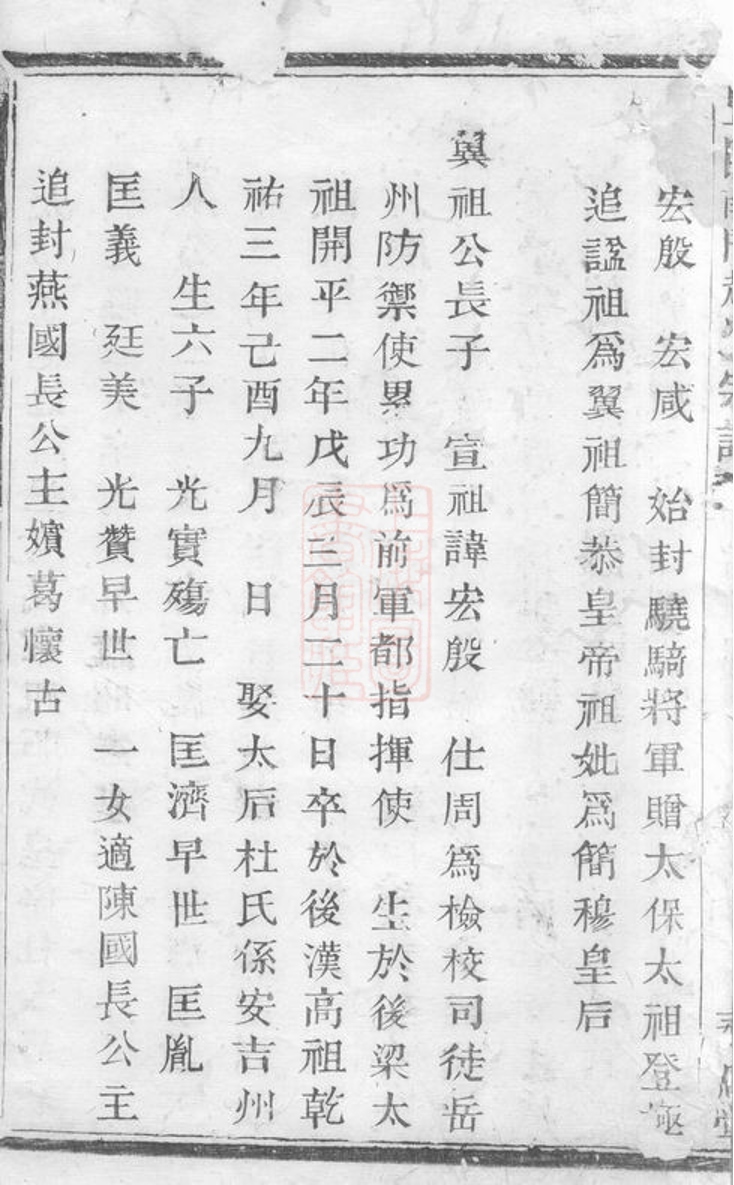 宏殷　宏咸　始封驍騎將軍贈太保太祖登極
追諡祖爲翼祖簡恭皇帝祖妣爲簡穆皇后
翼祖公長子　宣祖諱宏殷　仕周爲檢校司徒岳
州防禦使累功爲前軍都指揮使　生於後梁太
祖開平二年戊辰三月二十日卒於後漢高祖乾
祐三年己酉九月　日　娶太后杜氏係安吉州
人　生六子　光實殤亡　匡濟早世　匡胤
匡義　廷美　光贊早世　一女適陳國長公主
追封燕國長公主嬪葛懷古